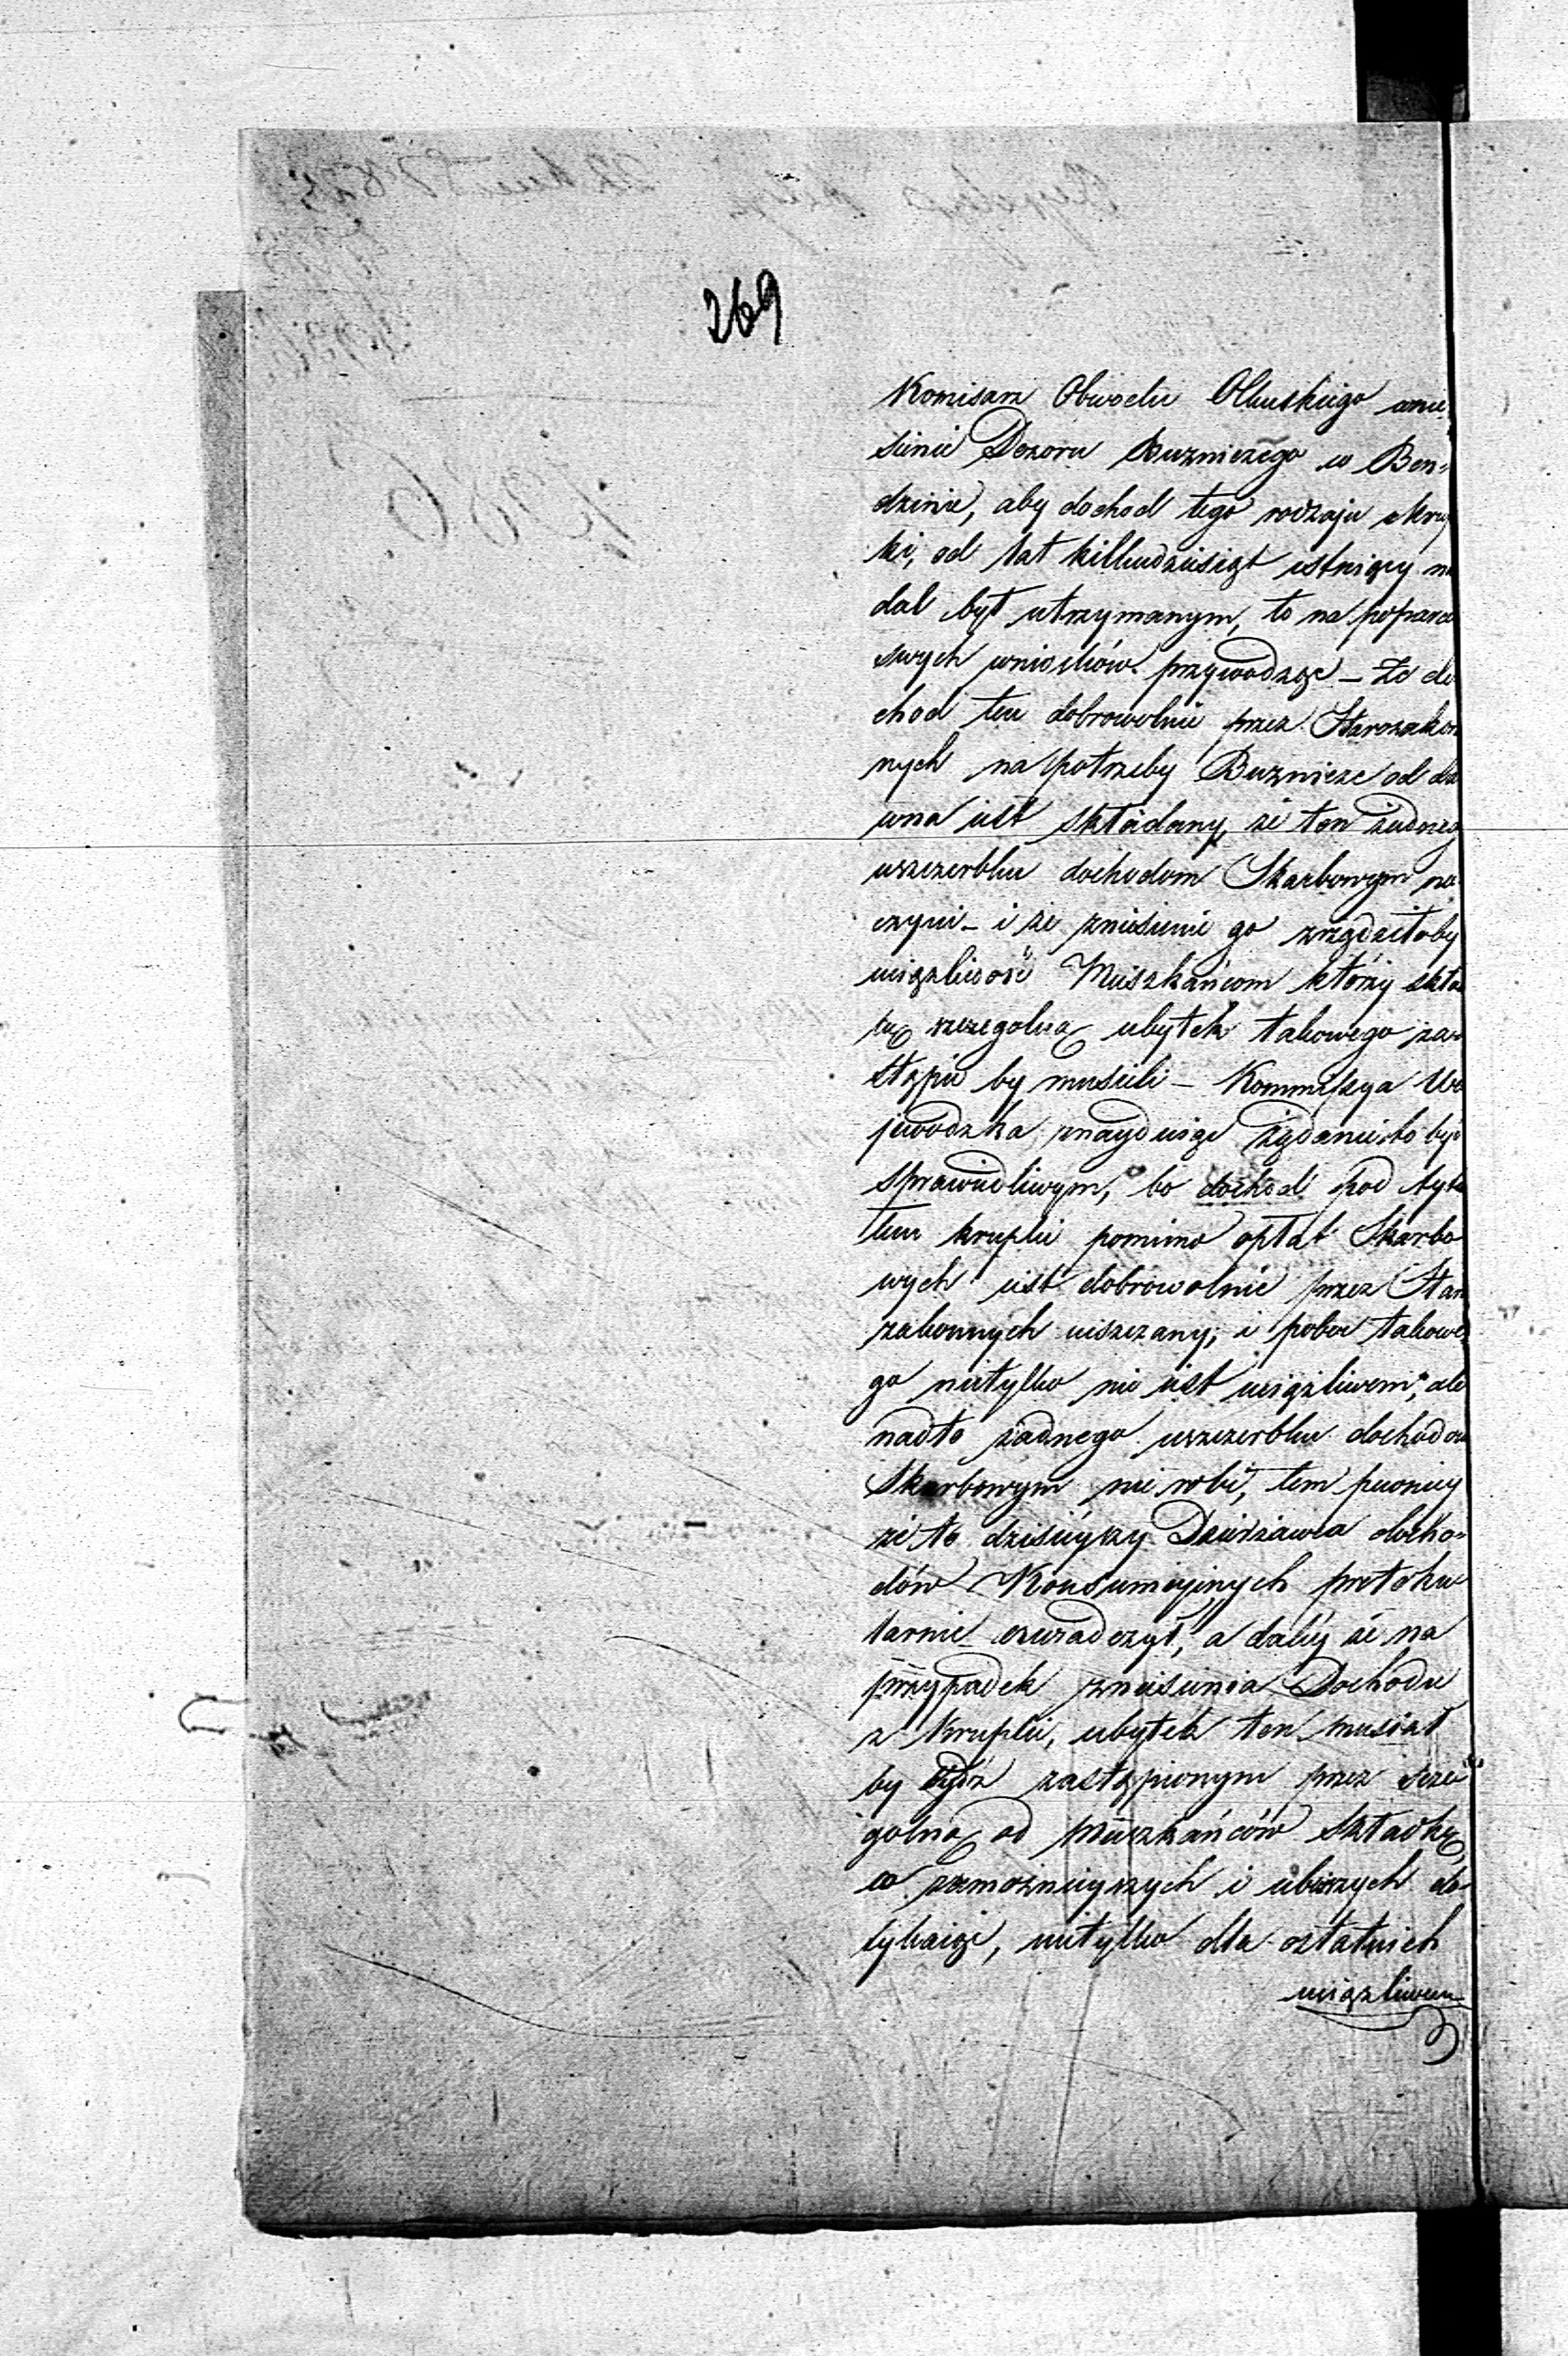 269
Komisarz Obwodu Olkuskiego wnie
sienie Dozoru Buzniczego w Ben=
dzinie, aby dochod tego rodzaju z Kru
ki, od lat kilkudziesiąt istniejący na
dal był utrzymanym, to na poparcie
swych wniosków przywodząc – że do
chod ten dobrowolnie przez Starozakon
nych na potrzeby Buznicze od da
wna iest składany, że ten żadneg
uszczerbku dochodom Skarbowym nie
czyni – i że zniesienie go zrządziłoby
uciążliwość Mieszkańcom którzy skła
kę szczegolną ubytek takowego za
stąpić by musieli – Kommissya Wo
jewodzka znayduiąc żądanie to być
sprawiedliwym, bo dochod pod tytu
łem krupki pomimo opłat Skarbo
wych iest dobrowolnie przez Star
zakonnych uiszczany, i pobor takowe
go nietylko nie iest uciążliwem, ale
nadto żadnego uszczerbku dochodom
Skarbowym nie robi, tem pewniey
że to dzisieyszy Dzierżawca docho=
dów Konsumcyjnych protoku
larnie oswiadczył, a daley że na
przypadek zniesienia Dochodu
z Krupki, ubytek ten musiał
by bydź zastąpionym przez szcze
golną od Mieszkańców składkę,
co zamożnieyszych i uboższych do
tykaiąc, nietylko dla ostatnich
uciążliwem